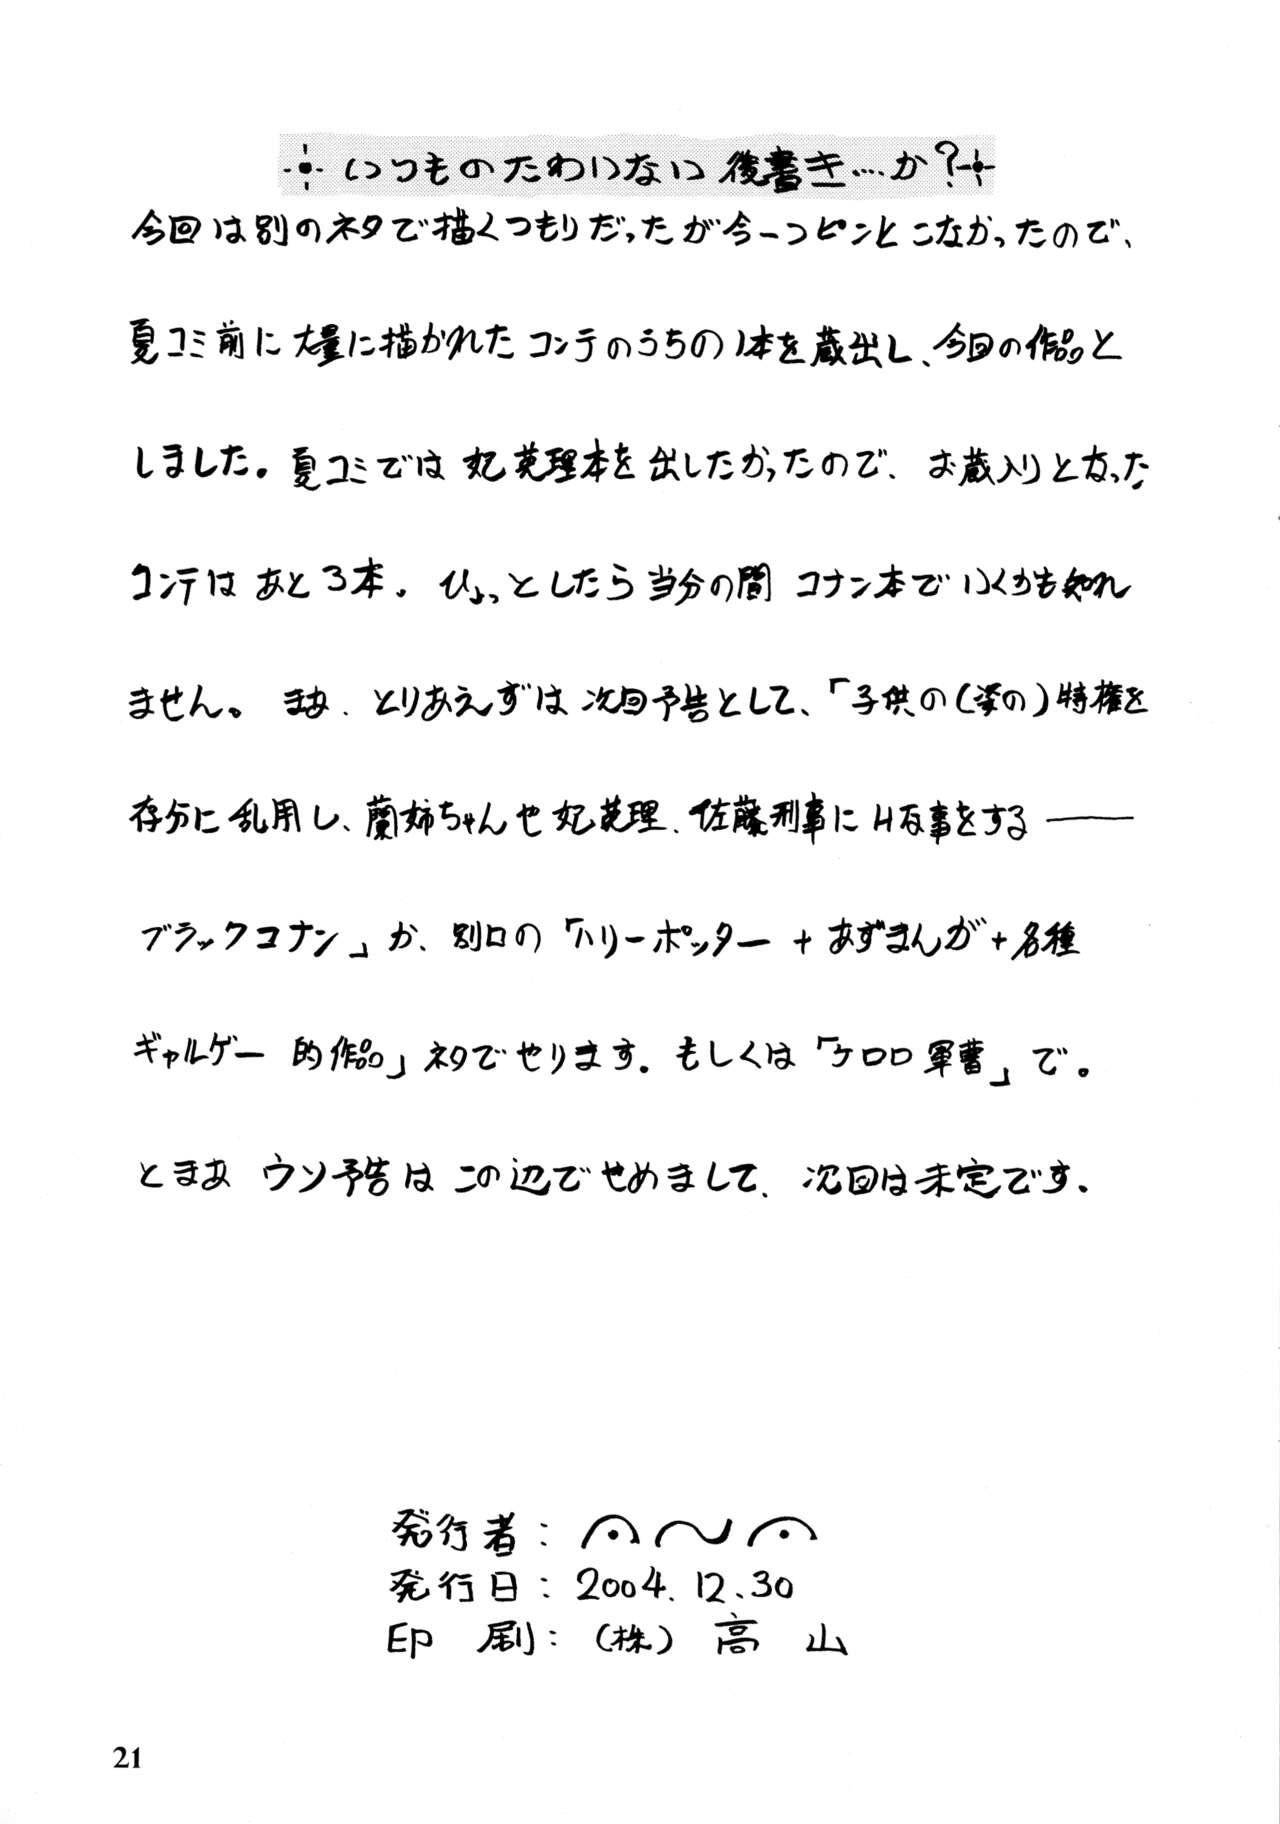 いつものたわいない後書き‥‥か?
今回は別のネタで描くつもりだったが今一つピンとこなかったので、
夏コミ前に大量に描かれたコンテのうちの1本を蔵出し、今回の作品と
しました。夏コミでは妃英理本を出したかったので、お蔵入りとなった
コンテはあと3本。ひょっとしたら当分の間コナン本でいくかも知れ
ません。まあ、とりあえずは次回予告として、「子供の(姿の)特権を
存分に乱用し、蘭姉ちゃんや妃英理、佐藤刑事にHな事をする――
ブラックコナン」か、別口の「ハリーポッター+あずまんが+各種
ギャルゲー的作品」ネタでやります。もしくは「ケロロ軍曹」で。
とまあウソ予告はこの辺でせめまして、次回は未定です。
発行者:
発行日:2004.12.30
印刷:(株)高山
21